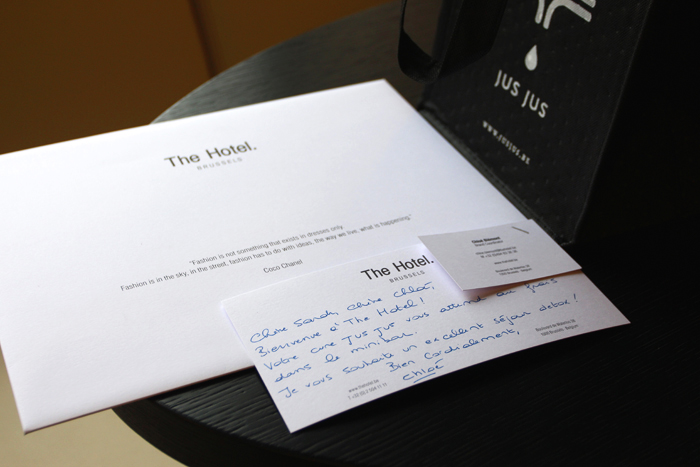 The Hotel.
BRUSSELS
"Fashion is not something that exists in dresses only.
Fashion is in the sky, in the street, fashion has to do with ideas, the way we live, what is happening."
Coco Chanel
JUS JUS
www.jusjus.be
The Hotel.
BRUSSELS
Chère Sandy, chère Chloé,
Bienvenue à The Hotel!
Votre cure Jus Jus vous attend au frais
dans le minibar.
Je vous souhaite un excellent séjour detox!
Bien Cordialement,
Chloé
www.thehotel.be
Boulevard de Waterloo 38
1000 Brussels - Belgium